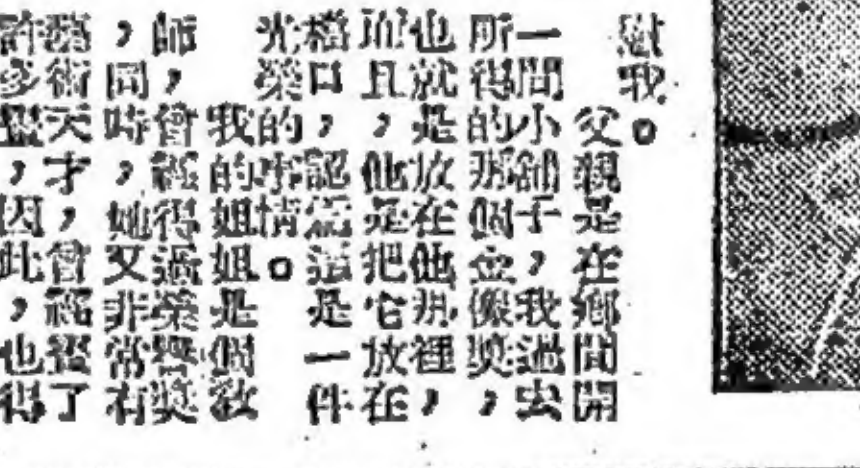 慰我。
父親是在鄉間開
一間小舖子,我過去
所得的那個金像獎,
也就是放在他那裡,
而且,他是把它放在
檔口,認為這是一件
光榮的事情。
我的姐姐是個教
師,曾經得過榮譽獎
,同時,她又非常有
藝術天才,曾經畫了
許多畫,因此,也得